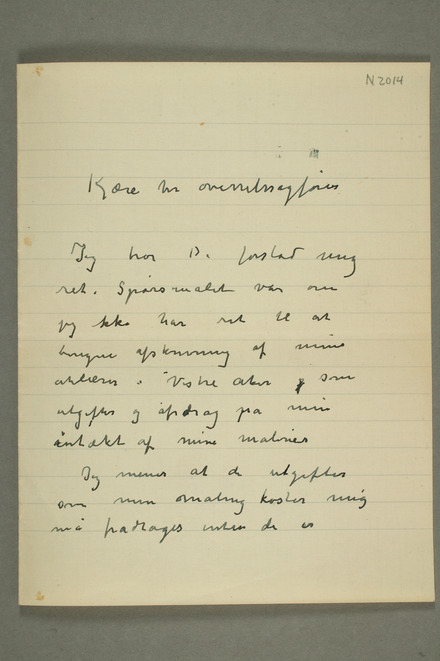 N 2014
Kjære hr overretssagfører
Jeg tror De forstod mig
ret. Spørsmålet var om
jeg ikke har ret til at
afskrivning af mine
i Vestre Aker som
utgifter og afdrag på min
intækt af mine malerier
Jeg mener at de utgifter
som min maling koster mig
må fradrages inten de er